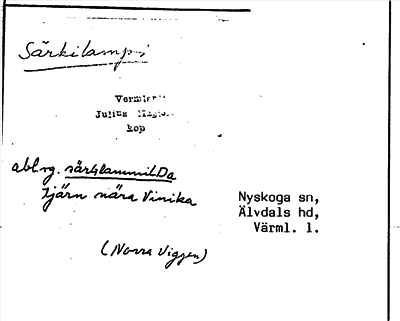 Särkilampi
Julius
kop
ablvg. särklammilDa
tjärn nära Vinika
Nyskoga sn,
Älvdals hd,
Värml. l.
(Norra Viggen)